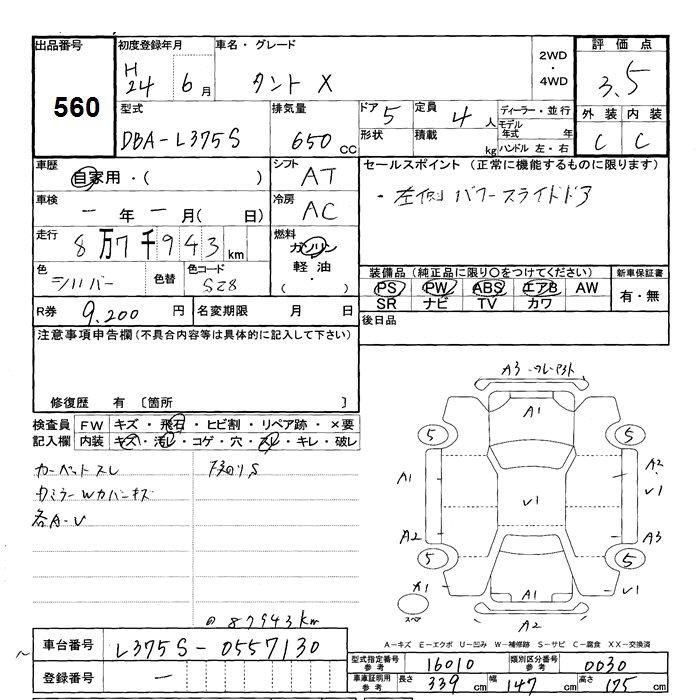 出品番号
560
初度登録年月
H24 6月
車名・グレード
タント X
2WD
4WD
評価点
3.5
型式
DBA-L375S
排気量
650 CC
ドア 5
形状
定員 4 人
積載 kg
ディーラー・並行
モデル年式 年
ハンドル 左・右
外装 内装
C C
車歴
自家用・( )
シフト
AT
セールスポイント (正常に機能するものに限ります)
・左側パワースライドドア
車検
一年一月( 日)
冷房
AC
走行
8万7千943 km
燃料
ガソリン
軽油
・
( )
色
シルバー
色替
色コード
S28
装備品 (純正品に限り○をつけてください)
PS PW ABS エアB AW
SR ナビ TV カワ
新車保証書
有・無
R券 9,200 円
名変期限 月 日
後日品
注意事項申告欄 (不具合内容等は具体的に記入して下さい)
修復歴 有 〔箇所 〕
検査員記入欄
FW キズ・飛石・ヒビ割・リペア跡・×要
内装 キズ・汚レ・コゲ・穴・スレ・キレ・破レ
カーペットスレ
各A-U
A3
A1
5 5
A1
A2
A2
A3
5 5
A1
A1
A2
スペア
87943km
車台番号 L375S-0557130
登録番号 一
A-キズ E-エクボ U-凹み W-補修跡 S-サビ C-腐食 XX-交換済
型式指定番号 参考 16010
類別区分番号 参考 0030
車庫証明用 参考 長さ 339 cm 幅 147 cm 高さ 175 cm